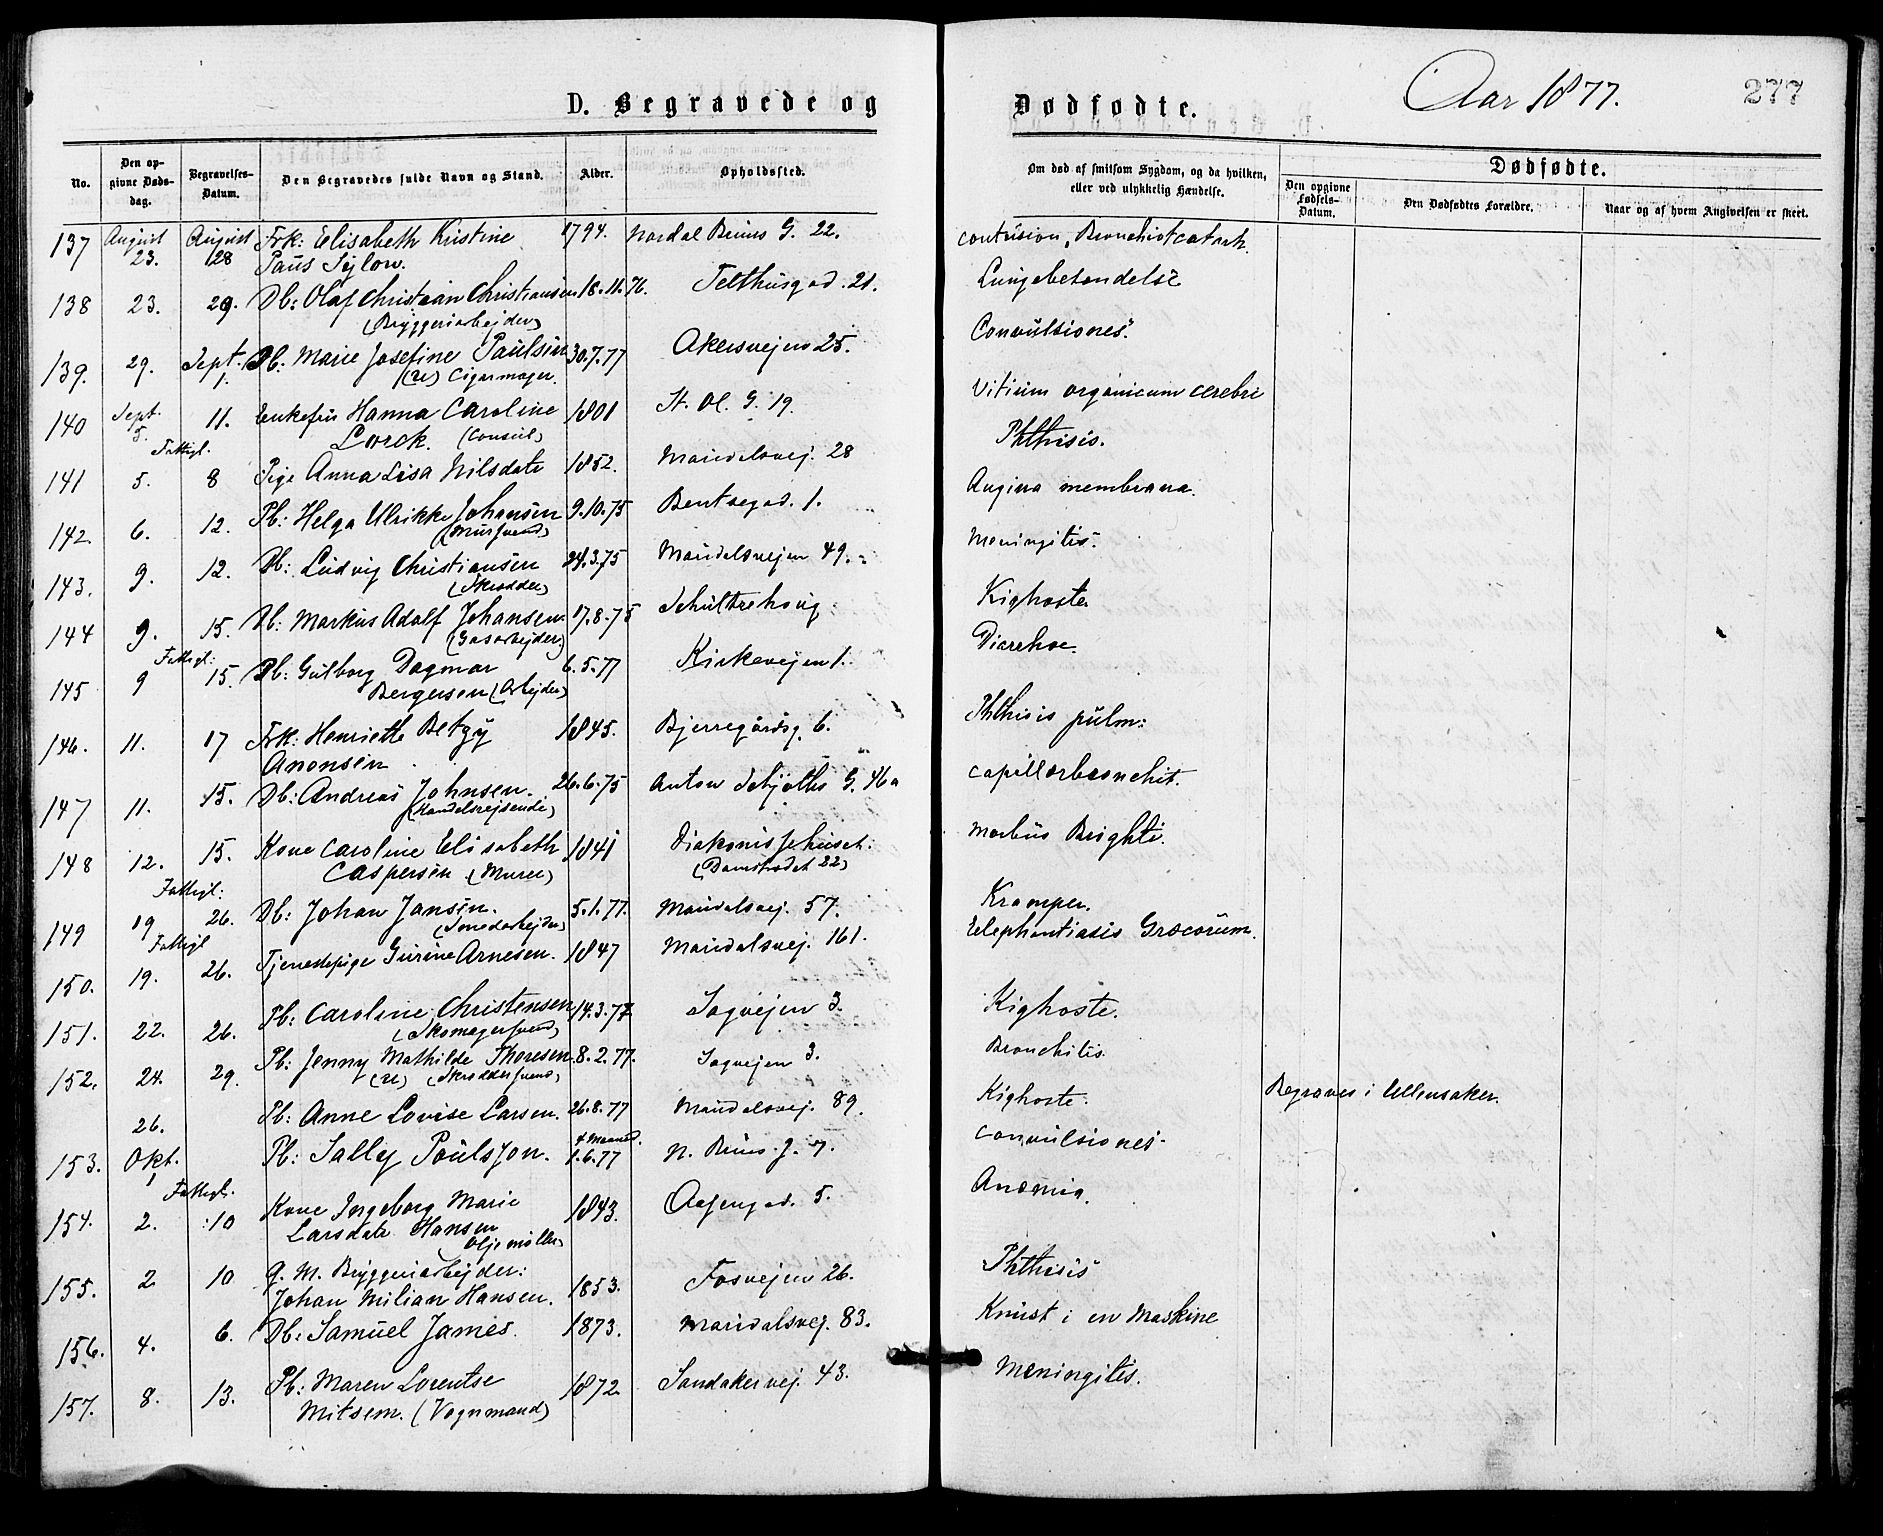 D. Begravede og Dødfødte.
Aar 1877.
277
No.
Den opgivne Dødsdag.
Begravelses-Datum.
Den Begravedes fulde Navn og Stand.
Alder.
Opholdssted.
Om død af smitsom Sygdom, og da hvilken, eller ved ulykkelig Hændelse.
Dødfødte.
Den opgivne Fødsels-Datum.
Den Dødfødtes Forældre.
Naar og af hvem Angivelsen er skeet.
137 August 23. August 28 Frk: Elisabeth Kristine 1794. Nordal Bruns G. 22. Contusion, Bronchiotcatarh.
Paus Sylow.
138 23. 29. Db: Olaf Christian Christiansen 18.11.76. Telthusgad. 21. Lungebetendelse
(Bryggeriarbejder)
139. 29. Sept. 1. Pb: Marie Josefine Paulsen 30.7.77 Akersvejen 25. Convulsiones.
(u) Cigarmager.
140 Sept. 5. 11. Enkefru Hanna Caroline 1801 St. Ol. G. 19. Vitium organicum cerebri
Lorck. (Consul)
Fattigl.
141 5. 8 Pige Anna Lisa Nilsdate 1852. Maridalsvej. 28 Phthisis.
142. 6. 12. Pb: Helga Ulrikke Johansen 9.10.75 Bentsegad. 1. Angina membrana.
(Mursvend)
143. 9. 12. Db: Ludvig Christiansen 24.3.75 Maridalsvejen 49. Meningitis.
(Skrædder)
144 9. 15. Db: Markus Adolf Johansen 17.8.75 Schultzehaug Kighoste
(Gasarbejder)
Fattigl:
145 9 15. Pb: Gulborg Dagmar 6.5.77 Kirkevejen 1. Diarrhoe.
Bergersen (Arbejder)
146. 11. 17 Frk: Henriette Betzy 1845. Bjerregårdsg. 6. Phthisis pulm:
Anonsen
147 11. 15. Db: Andreas Johnsen. 26.6.75 Anton Schjøths G. 46a Capillærbronchit.
(Handelsrejsende)
148 12. 15. Kone Caroline Elisabeth 1841 Diakonissehuset. Morbus Brighti.
Caspersen (Murer) (Damstrædet 22)
Fattigl:
149 19 26. Db: Johan Jansen. 5.1.77. Maridalsvej. 57. Kramper.
(Smedarbejder)
Fattigl
150. 19. 26. Tjenestepige Gurine Arnesen. 1847 Maridalsvej. 161. Elephantiasis Græcorum.
151. 22. 26. Pb: Caroline Christensen 14.3.77 Sagvejen 3. Kighoste.
(Skomagersvend)
152. 24. 29. Pb: Jenny Mathilde Thoresen 8.2.77. Sagvejen 3. Bronchitis.
(u) (Skræddersvend)
26. Pb: Anne Lovise Larsen. 26.8.77 Maridalsvej. 89. Kighoste. Begraves i Ullensaker.
4 Maaned.
153. Okt. 1 Pb: Sally Poulsson. 1.6.77 N. Bruns. g. 7. Convulsiones.
Fattigl.
154. 2. 10 Kone Ingeborg Marie 1843. Aasengad. 5. Anæmia.
Larsdate Hansen
Oljemøller)
155. 2 10 G. M. Bryggeriarbejder: Phthisis
Johan Milian Hansen. 1853. Fosvejen 26.
156. 4. 6. Db: Samuel James. 1873. Maridalsvej. 83. Knust i en Maskine
157. 8. 13. Pb: Maren Lorentse 1872. Sandakervej. 43. Meningitis.
Mitsem. (Vognmand)